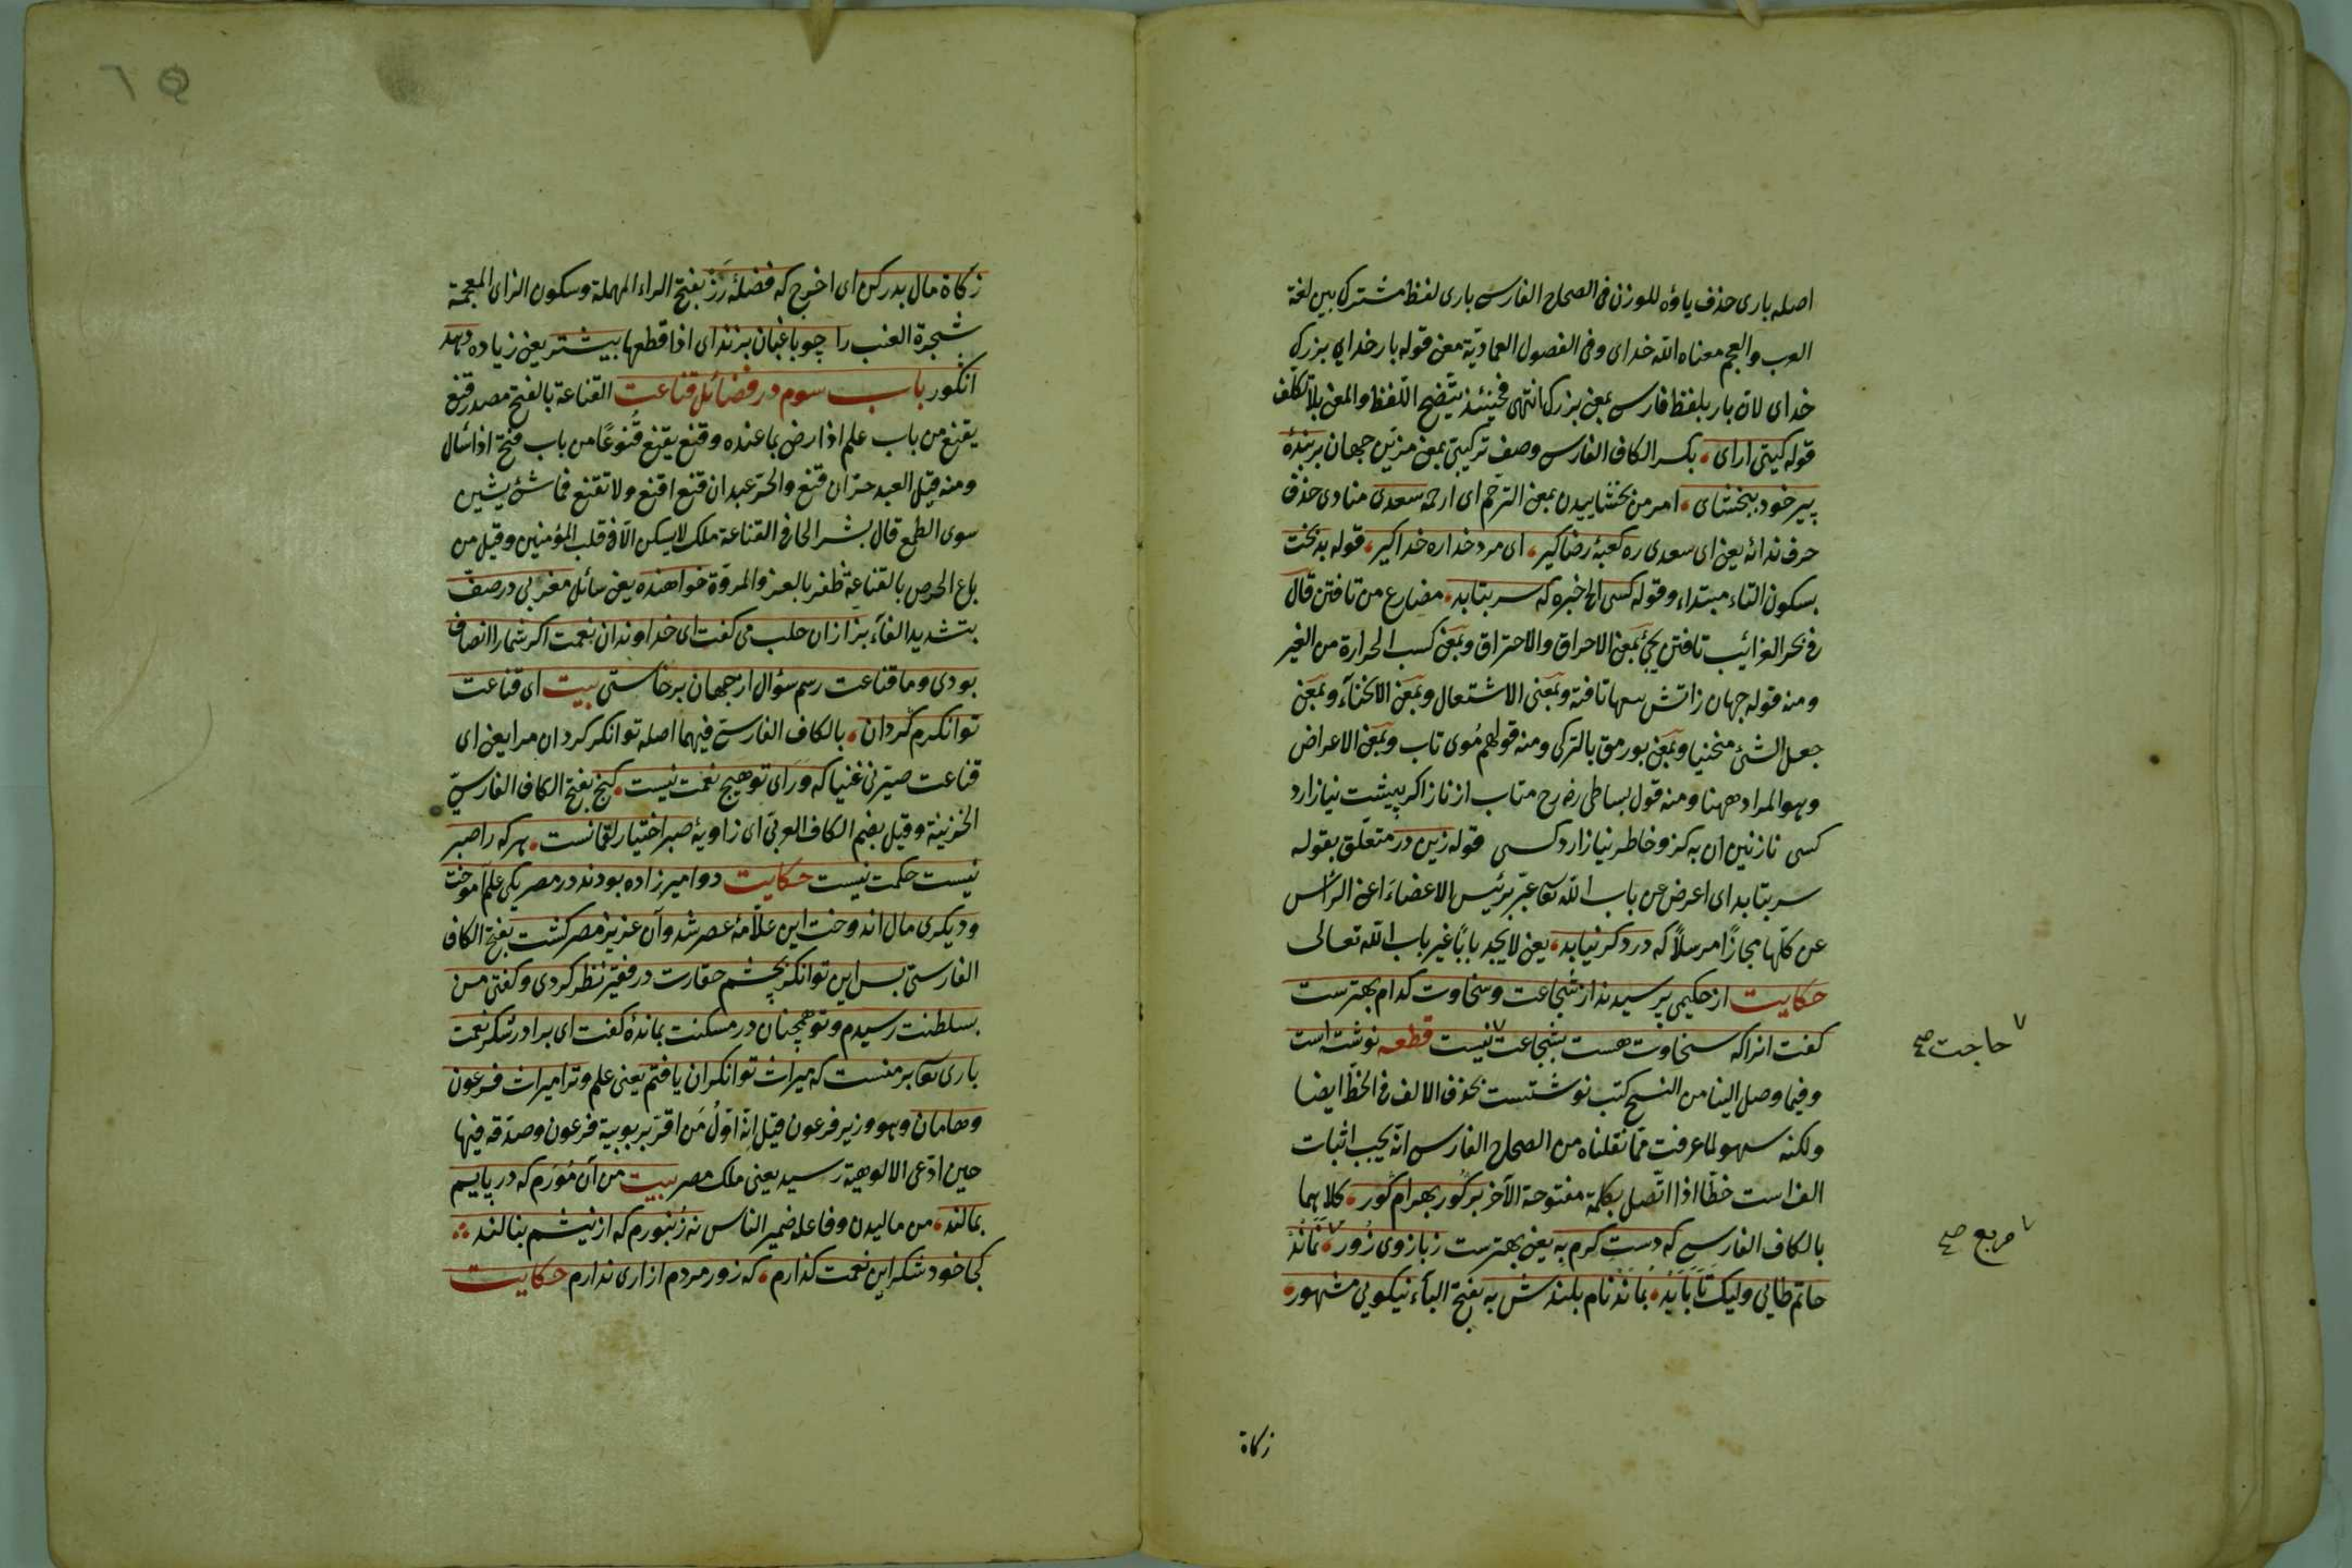 اصله بارى حذف ياؤه للوزن فى الصحاح الفارسى بارى لفظ مشترك بين لغة
العرب والعجم معناه الله خداى وفى الفصول العمادية معنى قوله بار خداى بزرك
خداى لان بار بلفظ فارسى بمعنى بزرك انتهى فحينئذ يتضح اللفظ والمعنى بلا تكلف
قوله كيتى اراى بكسر الكاف الفارسى وصف تركيبى بمعنى مزين جهان بر بندۀ
پير خود ببخشاى امر من بخشاييدن بمعنى الترحم اى ارحم سعدى منادى حذف
حرف ندائه يعنى اى سعدى ره كعبۀ رضا كير اى مرد خدا ره خدا كير قوله بدبخت
بسكون التاء مبتداء وقوله كسى الخ خبره كه سر بتابد مضارع من تافتن قال
فى بحر الغرائب تافتن يجئ بمعنى الاحراق والاحتراق وبمعنى كسب الحرارة من الغير
ومنه قوله جهان زاتش سها تافته وبمعنى الاشتعال وبمعنى الانحناء وبمعنى
جعل الشئ منحنيا وبمعنى بورمق بالتركى ومنه قولهم موى تاب وبمعنى الاعراض
وهو المراد ههنا ومنه قول بساطى رخ متاب از ناز اكر پيشت نياز ارد
كسى نازنين ان به كزو خاطر نيازارد كسى قوله زين در متعلق بقوله
سر بتابد اى اعرض عن باب الله تعا عبر برئيس الاعضاء اعنى الراس
عن كلها مجازا مرسلا كه در دكر نيابد يعنى لا يجد بابا غير باب الله تعالى
حكايت از حكيمى پرسيدند از شجاعت وسخاوت كدام بهترست
كفت انرا كه سخاوت هست بشجاعت ٧ نيست قطعه نوشته است
٧ حاجت صح
وفيما وصل الينا من النسخ كتب نوشتست بحذف الالف فى الخط ايضا
ولكنه سهو لما عرفت مما نقلناه من الصحاح الفارسى انه يجب اثبات
الف است خطا اذا اتصل بكلمة مفتوحة الآخر بر كور بهرام كور كلاهما
بالكاف الفارسى كه دست كرم به يعنى بهترست ز بازوى زور ٧ نماند
٧ مربع صح
حاتم طائى وليك تا بابد بماند نام بلندش به بفتح الباء نيكويى مشهور
زكاة
زكاة مال بدر كن اى اخرج كه فضلۀ رز بفتح الراء المهملة وسكون الزاى المعجمة
شجرة العنب را چو باغبان بزند اى اذا قطعها بيشتر يعنى زياده دهد
انكور باب سوم در فضائل قناعت القناعة بالفتح مصدر قنع
يقنع من باب علم اذا رضى بما عنده وقنع يقنع قنوعا من باب فتح اذا سأل
ومنه قيل العبد حر ان قنع والحر عبد ان قنع اقنع ولا تقنع فما شئ يشين
سوى الطمع قال بشر الحافى القناعة ملك لا يسكن الا فى قلب المؤمنين وقيل من
باع الحرص بالقناعة ظفر بالعز والمروة خواهنده يعنى سائل مغربى در صف
بتشديد الفاء بزازان حلب مى كفت اى خداوندان نعمت اكر شمارا انصاف
بودى وما قناعت رسم سؤال از جهان برخاستى بيت اى قناعت
توانكرم كردان بالكاف الفارسى فيهما اصله توانكر كردان مرا يعنى اى
قناعت صيرنى غنيا كه وراى تو هيچ نعمت نيست كنج بفتح الكاف الفارسى
الخزينة وقيل بضم الكاف العربى اى زاويۀ صبر اختيار لقمانست هركه را صبر
نيست حكمت نيست حكايت دو اميرزاده بودند در مصر يكى علم آموخت
وديكرى مال اندوخت اين علامۀ عصر شد وآن عزيز مصر كشت بفتح الكاف
الفارسى بس اين توانكر بچشم حقارت در فقير نظر كردى وكفتى من
بسلطنت رسيدم وتو همچنان در مسكنت بماندۀ كفت اى برادر شكر نعمت
بارى تعا بر منست كه ميراث توانكران يافتم يعنى علم وترا ميراث فرعون
وهامان وهو وزير فرعون قيل انه اول من اقر بربوبية فرعون وصدقه فيها
حين ادعى الالوهية رسيد يعنى ملك مصر بيت من آن مورم كه در پايم
بمالند من ماليدن وفاعله ضمير الناس نه زنبورم كه از نيشم بنالند
كجا خود شكر اين نعمت كذارم كه زور مردم ازارى ندارم حكايت